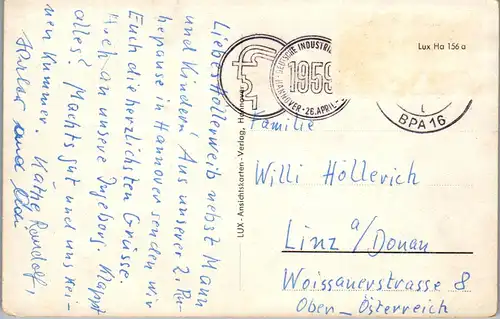 Liebes Höllerweib nebst Mann
und Kindern! Aus unserer 2. Ru-
hepause in Hannover senden wir
Euch die herzlichsten Grüsse.
Auch an unsere Ingeborg. Klappt
alles? Machts gut und uns kei-
nen Kummer. Käthe Rondorf,
und
LUX-Ansichtskarten-Verlag, Hannover
DEUTSCHE INDUSTRIE
1959
HANNOVER · 26. APRIL -
Lux Ha 156 a
BPA 16
Familie
Willi Höllerich
Linz a/Donau
Woissauerstrasse 8
Ober-Österreich